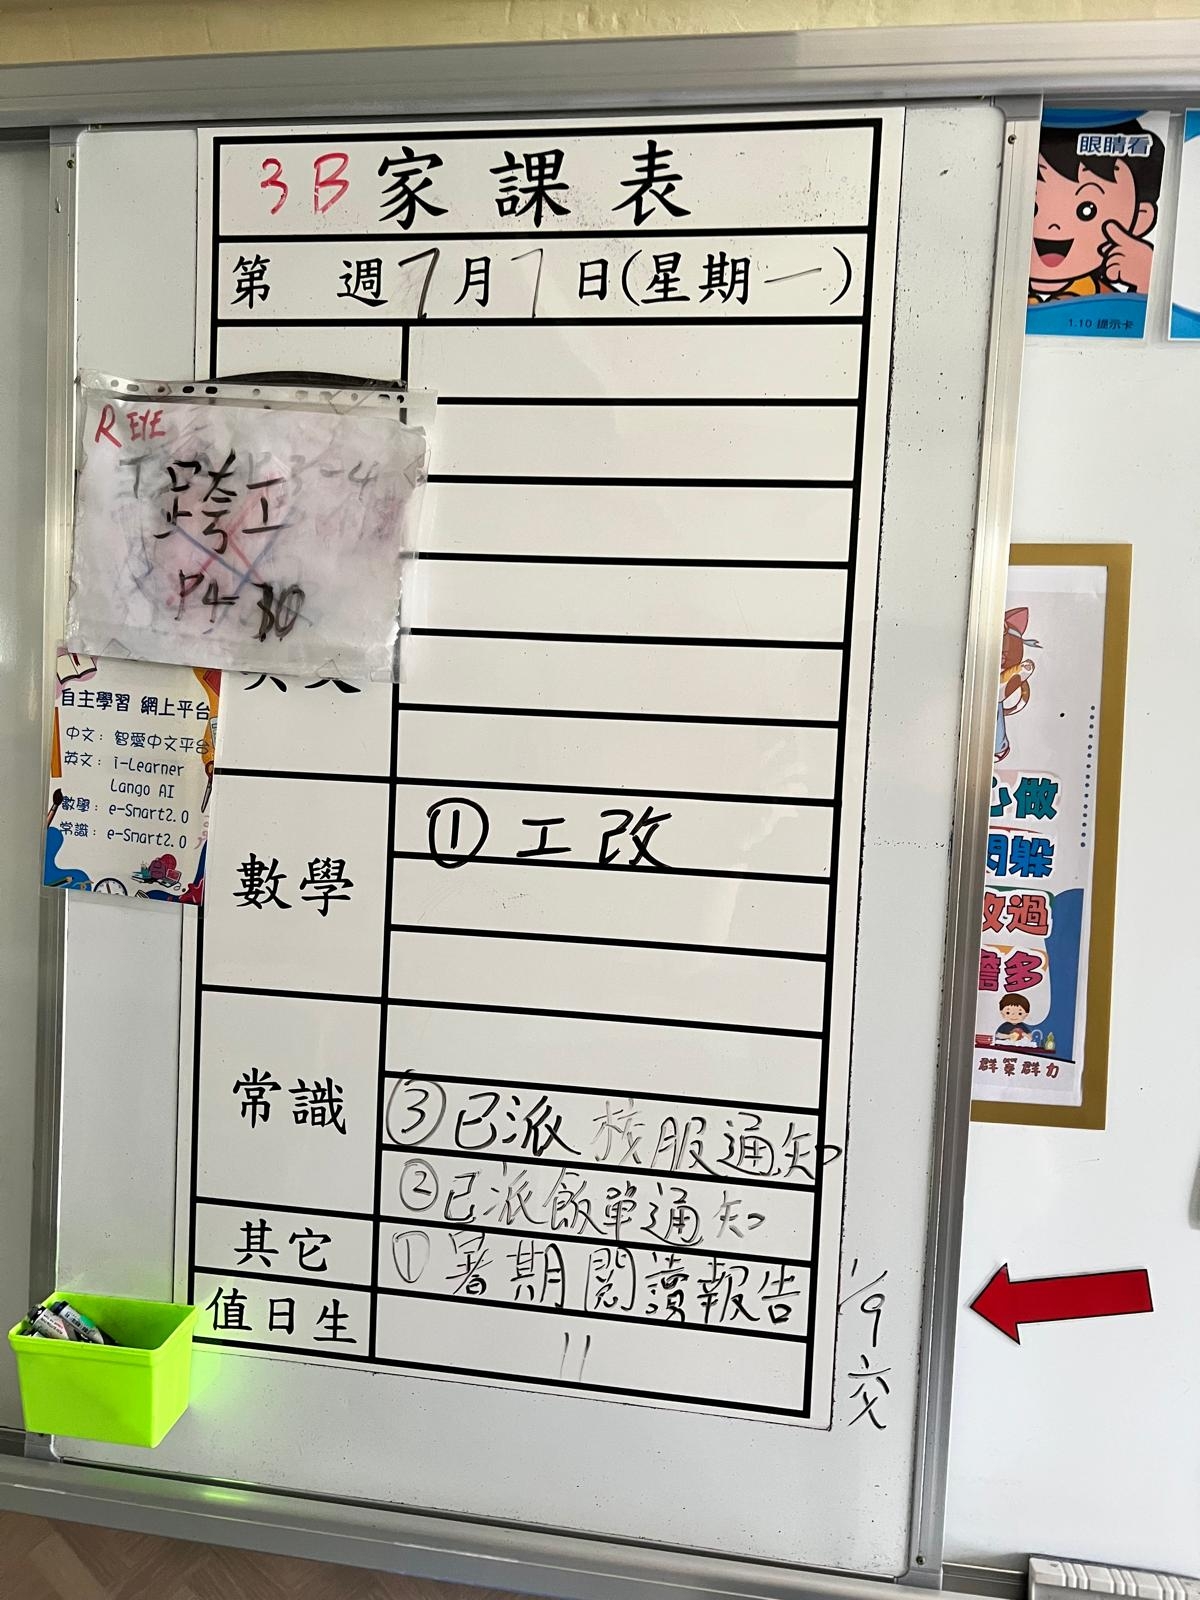 3B家課表
第 週7月7日(星期一)
R EYE
跨工
P4-30
英文
自主學習 網上平台
中文：智愛中文平台
英文：i-Learner
Lango AI
數學：e-Smart2.0
常識：e-Smart2.0
數學
① 工改
常識
③已派校服通知
②已派飯單通知
其它
①暑期閱讀報告
1/9交
值日生
11
眼睛看
1.10 提示卡
心做
躲
改過
擔多
群策群力